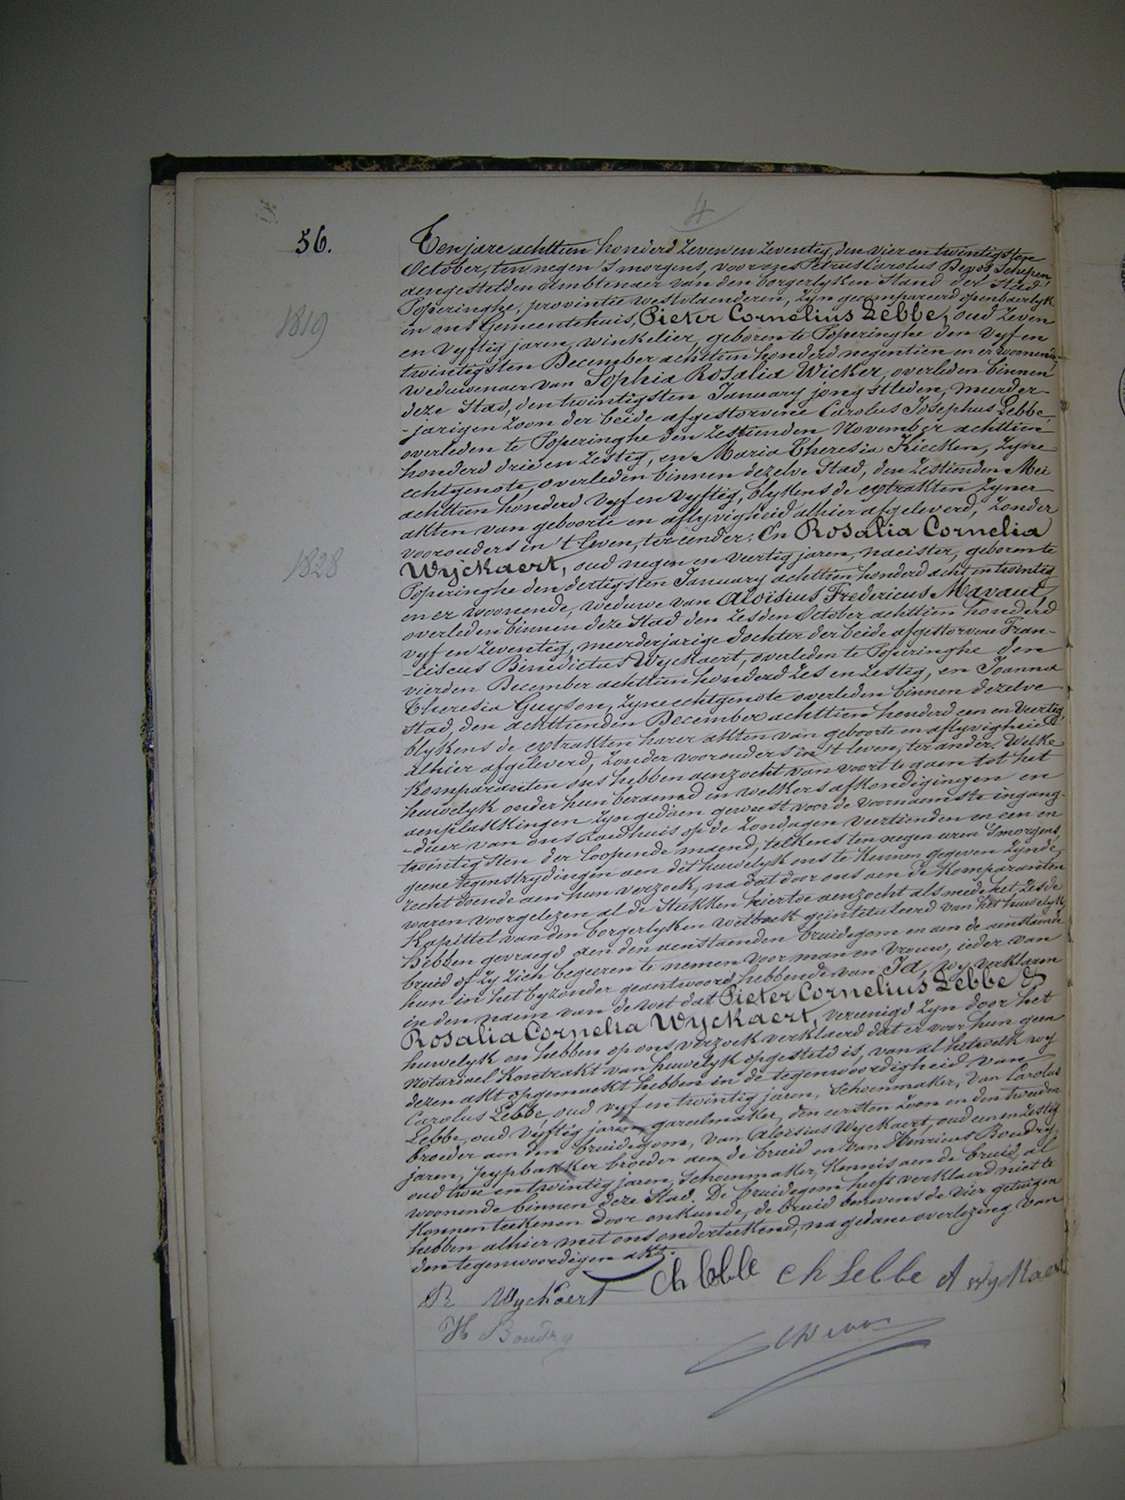 4
56.
Ten jare achttien honderd zeven en zeventig, den vier en twintigsten
October, ten negen 's morgens, voor ons Petrus Carolus Devos Schepen
aengestelden Ambtenaer van den borgerlyken Stand der Stad
Poperinghe, provintie westvlaenderen, zyn gecompareerd openbaerlyk
1819
in ons Gemeentehuis, Pieter Cornelius Lebbe, oud zeven
en vyftig jaren, winkelier, geboren te Poperinghe den vyf en
twintigsten December achttien honderd negentien en er woonende,
weduwenaer van Sophia Rosalia Wicker, overleden binnen
deze Stad, den twintigsten January jongstleden, meerder-
-jarigen zoon der beide afgestorvene Carolus Josephus Lebbe,
overleden te Poperinghe den zestienden November achttien
honderd drie en zestig, en Maria Theresia Kiecken, zyne
echtgenote, overleden binnen dezelve Stad, den zestienden Mei
achttien honderd vyf en vyftig, blykens de extrakten zyner
akten van geboorte en aflyvigheid alhier afgeleverd, zonder
voorouders in 't leven, ter eender; En Rosalia Cornelia
1828
Wyckaert, oud negen en veertig jaren, naeister, geboren te
Poperinghe den dertigsten January achttien honderd acht en twintig
en er woonende, weduwe van Aloisius Fredericus Mavaut,
overleden binnen deze Stad den zesden October achttien honderd
vyf en zeventig, meerderjarige dochter der beide afgestorvene Fran-
-ciscus Benedictus Wyckaert, overleden te Poperinghe den
vierden December achttien honderd zes en zestig, en Joanna
Theresia Guyson, zyne echtgenote overleden binnen dezelve
Stad, den achttienden December achttien honderd een en veertig,
blykens de extrakten harer akten van geboorte en aflyvigheid
alhier afgeleverd, zonder voorouders in 't leven, ter ander. Welke
komparanten ons hebben aenzocht van voort te gaen tot het
huwelyk onder hun beraemd en welkers afkondigingen en
aenplakkingen zyn gedaen geweest voor de voornaemste ingang-
-deur van ons Raedhuis op de zondagen veertienden en een en
twintigsten der loopende maend, telkens ten negen uren 's morgens,
geene tegenstrydingen aen dit huwelyk ons te kennen gegeven zynde,
recht doende aen hun verzoek, na dat door ons aen de komparanten
waren voorgelezen al de stukken hiertoe aenzocht als mede het zesde
Kapittel van den borgerlyken wetboek geïntituleerd van het huwelyk,
Hebben gevraegd aen den aenstaenden bruidegom en aen de aenstaende
bruid of zy zich begeeren te nemen voor man en vrouw, ieder van
hun in het byzonder geantwoord hebbende van Ja, wy verklaren
in den naem van de wet dat Pieter Cornelius Lebbe &
Rosalia Cornelia Wyckaert, vereenigd zyn door het
huwelyk en hebben op ons verzoek verklaerd dat er voor hun geen
Notariael Kontrakt van huwelyk opgesteld is, van al hetwelk wy
dezen akt opgemaekt hebben in de tegenwoordigheid van
Carolus Lebbe, oud vyf en twintig jaren, schoenmaker, van Carolus
Lebbe, oud vyftig jaren, gareelmaker, den eersten zoon en den tweeden
broeder aen den bruidegom, van Aloisius Wyckaert, oud een en zestig
jaren, pypbakker broeder aen de bruid en van Henricus Boudry,
oud twee en twintig jaren, schoenmaker, kennis aen de bruid, al
woonende binnen deze Stad. De bruidegom heeft verklaerd niet te
konnen teekenen door onkunde, de bruid benevens de vier getuigen
hebben alhier met ons onderteekend, na gedane overlezing van
den tegenwoordigen akt.
R Wyckaert Ch Lebbe Ch Lebbe A wyckaert
H Boudry